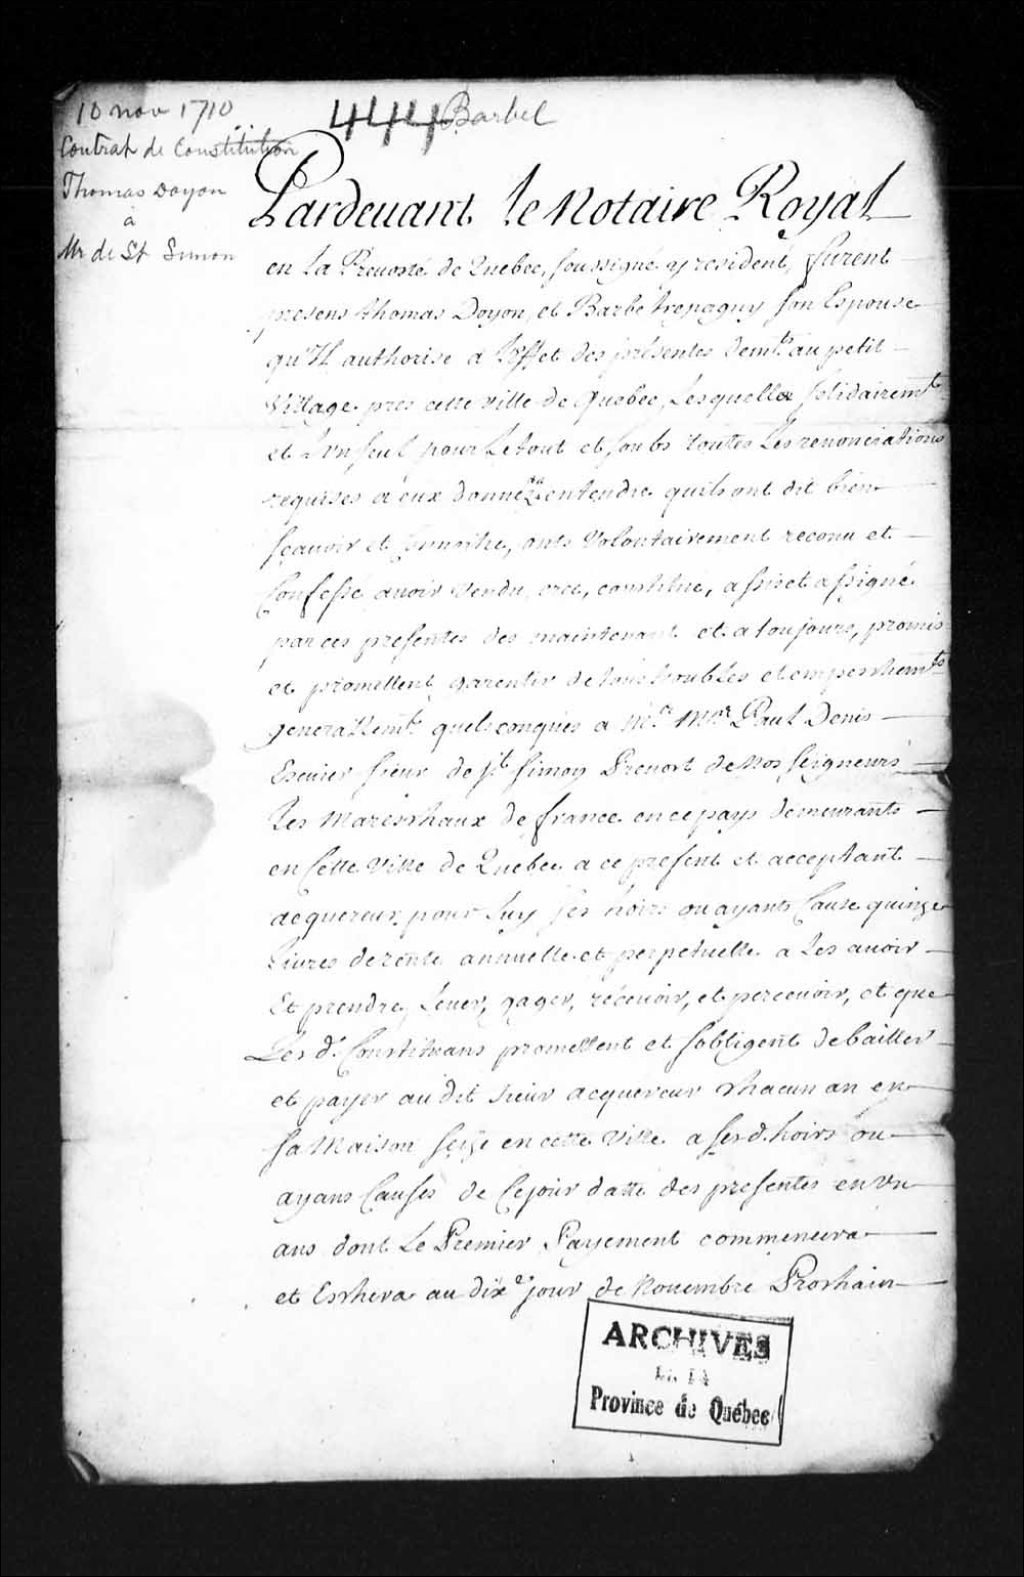 10 nov 1710
Contrat de Constitution
Thomas Doyon
à
Mr de St Simon
444 Barbel
Pardeuant le Notaire Royal
en la Preuosté de Quebec, soussigné y resident, furent
presens thomas Doyon, et Barbe trepagny son Espouse
qu'Il authorise a l'effet des presentes demt. au petit
Village pres cette ville de Quebec, Lesquelles solidairemt
et L'un seul pour Le tout et soubs toutes Les renonciations
requises a eux donnéz a entendre quils ont dit bien
sçauoir et connoitre, onts Volontairement reconu et
Confessé auoir Vendu, creé, constitué, assis et assigné
par ces presentes des maintenant et a toujours, promis
et promettent garentir de tous troubles et empeschemts
generallemt. quelsconques a Mre Paul Denis
Escuier sieur de St Simon Preuost de Nos seigneurs
Les Mareschaux de france en ce pays demeurants
en Cette Ville de Quebec a ce present et acceptant
acquereur pour Luy ses hoirs ou ayants Cause quinze
Liures de rente annuelle et perpetuelle a Les auoir
Et prendre, Leuer, gager, receuoir, et perceuoir, et que
Les d. Constituans promettent et sobligent de bailler
et payer au dit sieur acquereur chacun an en
sa Maison seize en cette Ville a ses d. hoirs ou
ayans Causes de Cejour datte des presentes en un
ans dont Le Premier Payement commencera
et Eschera au dixe jour de Nouembre Prochain
ARCHIVES
DE LA
Province de Québec